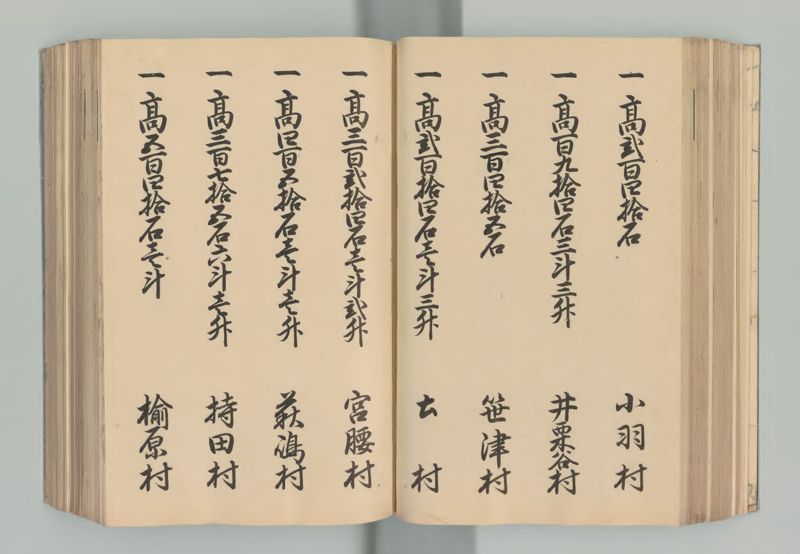 一 髙弐百四拾石 小羽村
一 髙百九拾四石三斗三升 井栗谷村
一 髙三百四拾五石 笹津村
一 髙弐百拾四石壱斗三升 土 村
一 髙三百弐拾四石壱斗弐升 宮腰村
一 髙四百五拾石壱斗壱升 萩嶋村
一 髙三百七拾五石六斗壱升 持田村
一 髙五百四拾石壱斗 楡原村